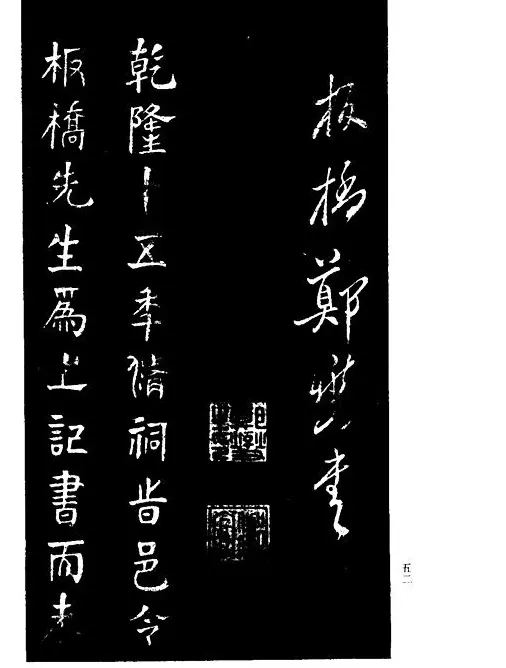 板橋鄭燮書
乾隆十五秊脩祠旹邑令
板橋先生爲之記書而未
五二